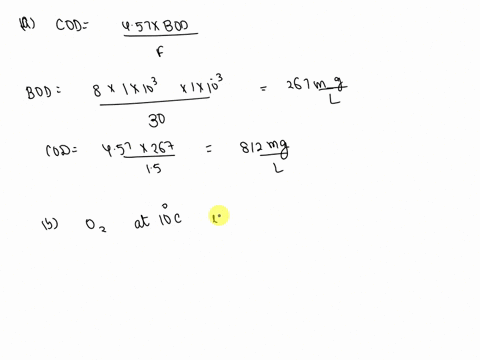 (a) COD = 4.57 × BOD / F
BOD = 8 × 1 × 10^3 × 1 × 10^-3 / 30 = 267 mg/L
COD = 4.57 × 267 / 1.5 = 812 mg/L
(b) O2 at 10°C